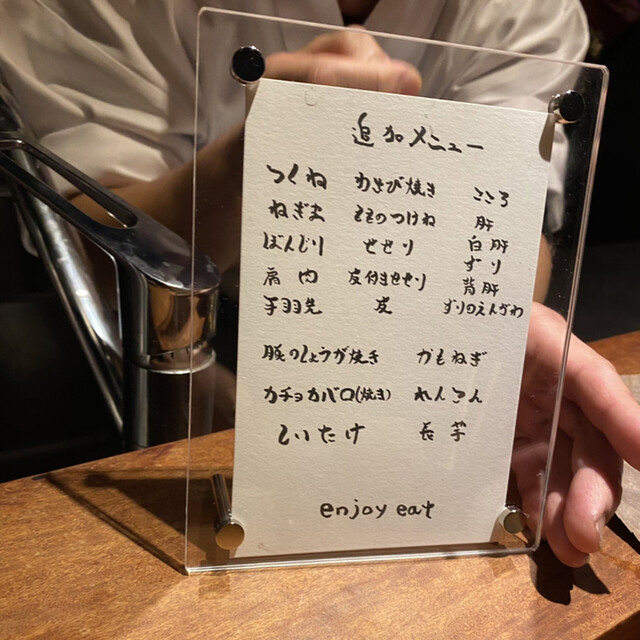 追加メニュー
つくね わさび焼き こころ
ねぎま ももつけね 肝
ぼんじり せせり 白肝
肩肉 皮付きせせり ずり
手羽先 皮 背肝
ずりのえんがわ
豚のしょうが焼き かもねぎ
カチョカバロ(焼き) れんこん
しいたけ 長芋
enjoy eat